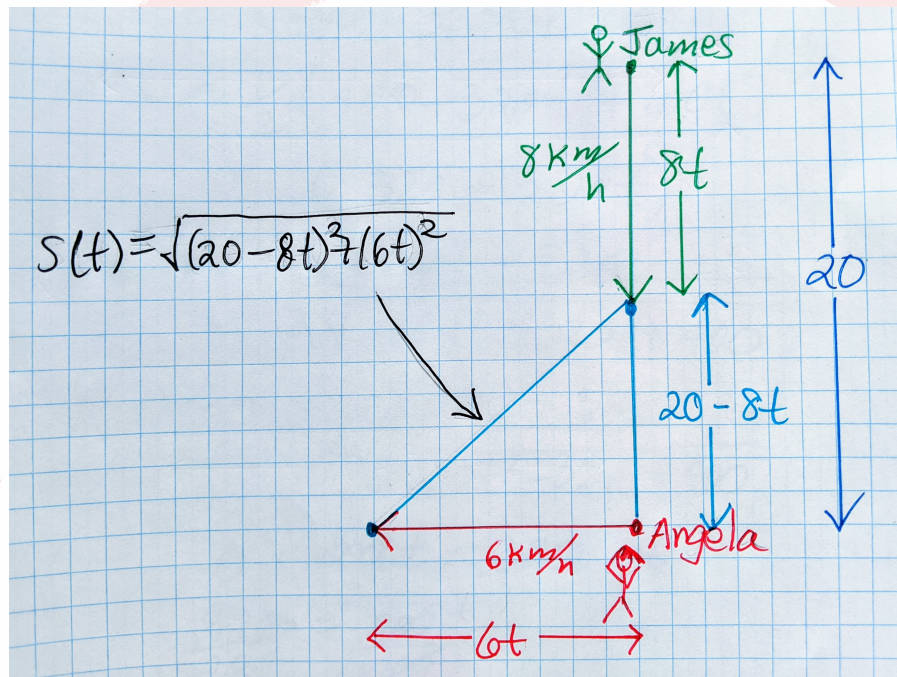 James
8 km/h
8t
S(t)=√(20-8t)²+(6t)²
20
20-8t
Angela
6 km/h
6t